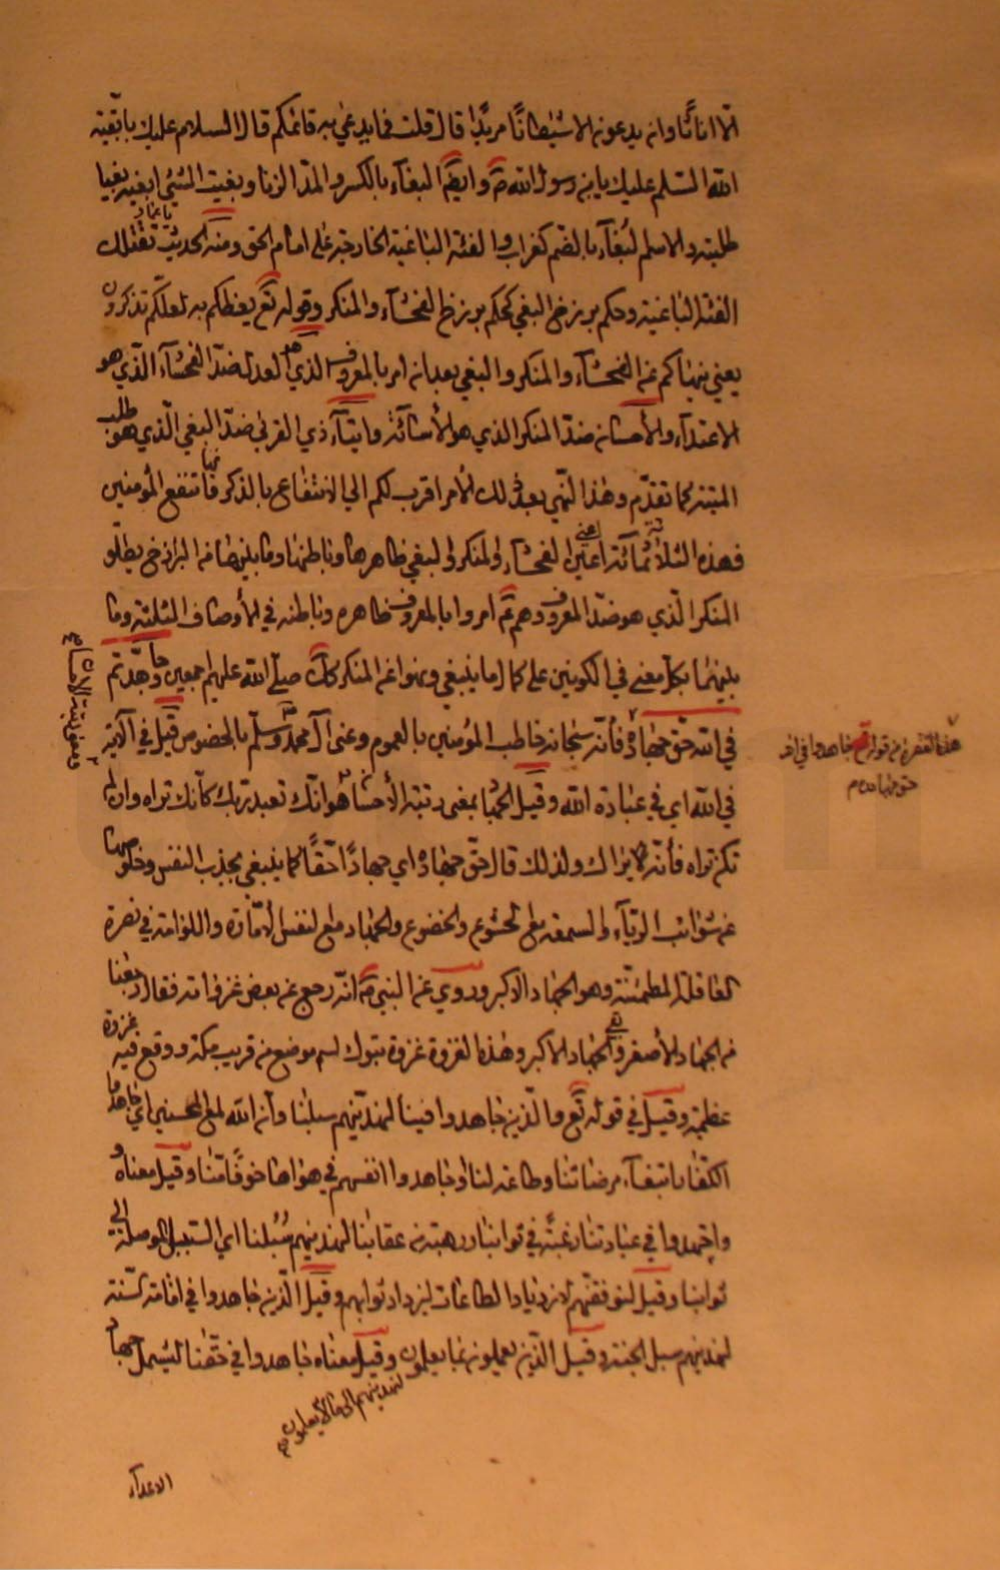 الا اناثا وان يدعون الا شيطانا مريدا قال قلت فما يدعى به قائمكم قال السلام عليك يا بقية
الله السلم عليك يابن رسول الله ص وايضا البغآء بالكسر والمد الزنا وبغيت الشيئ ابغيه بغيا
طلبته والاسم البغآء بالضم كغراب والفئة الباغية الخارجة على امام الحق ومنه الحديث تقتلك يا عمار
الفئة الباغية وحكم برزخ البغي كحكم برزخ الفحشآء والمنكر وقوله تع يعظكم به لعلكم تذكرون
يعني ينهاكم عن الفحشآء والمنكر والبغي بعد ان امر بالمعروف الذي هو العدل ضد الفحشآء الذي هو
الاعتدآء والأحسان ضد المنكر الذي هو الأسائة وايتآء ذي القربى ضد البغي الذي هو طلب
كما تقدم وهذا النهي بعد ذلك الأمر اقرب لكم الى الانتفاع بالذكر فانها تنفع المؤمنين
فهذه الثلاثمائة اعني الفحشآء والمنكر والبغي ظاهرها وباطنها وما بينهما من البرازخ
المنكر الذي هو ضد المعروف وهم ع امروا بالمعروف ظاهره وباطنه في الأوصاف الثلثة وما
بينهما بكل معنى في الكونين على كمال ما ينبغي ونهوا عن المنكر كك صلى الله عليهم اجمعين وجاهدتم
في الله حق جهاده فأنه سبحانه خاطب المؤمنين بالعموم وعنى آل محمد ص وسلم بالخصوص قيل في الآية
في الله اي في عبادة الله وقيل الجهاد بمعنى رتبة الأحسان هو انك تعبد ربك كانك تراه وان لم
تكن تراه فأنه يراك ولذلك قال حق جهاده اي جهادا حقا كما ينبغي بجذب النفس وخلوصها
عن شوائب الريآء والسمعة مع الخشوع والخضوع والجهاد مع النفس الأمارة واللوامة في نصرة
العاقلة المطمئنة وهو الجهاد الاكبر وروي عن النبي ص انه رجع عن بعض غزواته فقال رجعنا
من الجهاد الأصغر الى الجهاد الاكبر وهذه الغزوة غزوة تبوك اسم موضع من قريب مكة ووقع فيه غزوة
عظيمة وقيل في قوله تع والذين جاهدوا فينا لنهدينهم سبلنا وان الله لمع المحسنين اي جاهدوا
الكفار ابتغآء مرضاتنا وطاعة لنا وجاهدوا انفسهم في هواها خوفا منا وقيل معناه و
واجتهدوا في عبادتنا رغبة في ثوابنا ورهبة من عقابنا لنهدينهم سبلنا اي السبيل الموصلة الى
ثوابنا وقيل لنوفقنهم لازدياد الطاعات ليزداد ثوابهم وقيل الذين جاهدوا في اقامة السنة
لنهدينهم سبل الجنة وقيل الذين يعملون بما يعلمون وقيل معناه جاهدوا في حقنا ليشمل جهاد
لنهدينهم الى ما لا يعلمون صح
الاعدآء
هذه الفقرة من قوله تع جاهدوا في الله
حق جهاده م